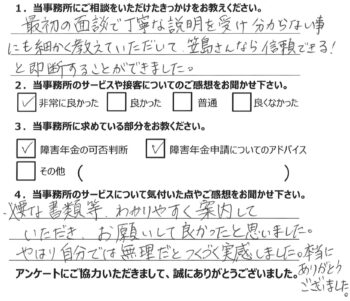 1．当事務所にご相談をいただけたきっかけをお教えください。
最初の面談で丁寧な説明を受け分からない事
にも細かく教えていただして笠島さんなら信頼できる!
と即断することができました。
2．当事務所のサービスや接客についてのご感想をお聞かせ下さい。
✓ 非常に良かった □ 良かった □ 普通 □ 良くなかった
3．当事務所に求めている部分をお教ください。
✓ 障害年金の可否判断 ✓ 障害年金申請についてのアドバイス
□ その他（ ）
4．当事務所のサービスについて気付いた点やご感想をお聞かせ下さい。
必要な書類等、わかりやすく案内して
いただき、お願いして良かったと思いました。
やはり自分では無理だとつくづく実感しました。本当に
ありがとう
ございました。
アンケートにご協力いただきまして、誠にありがとうございました。